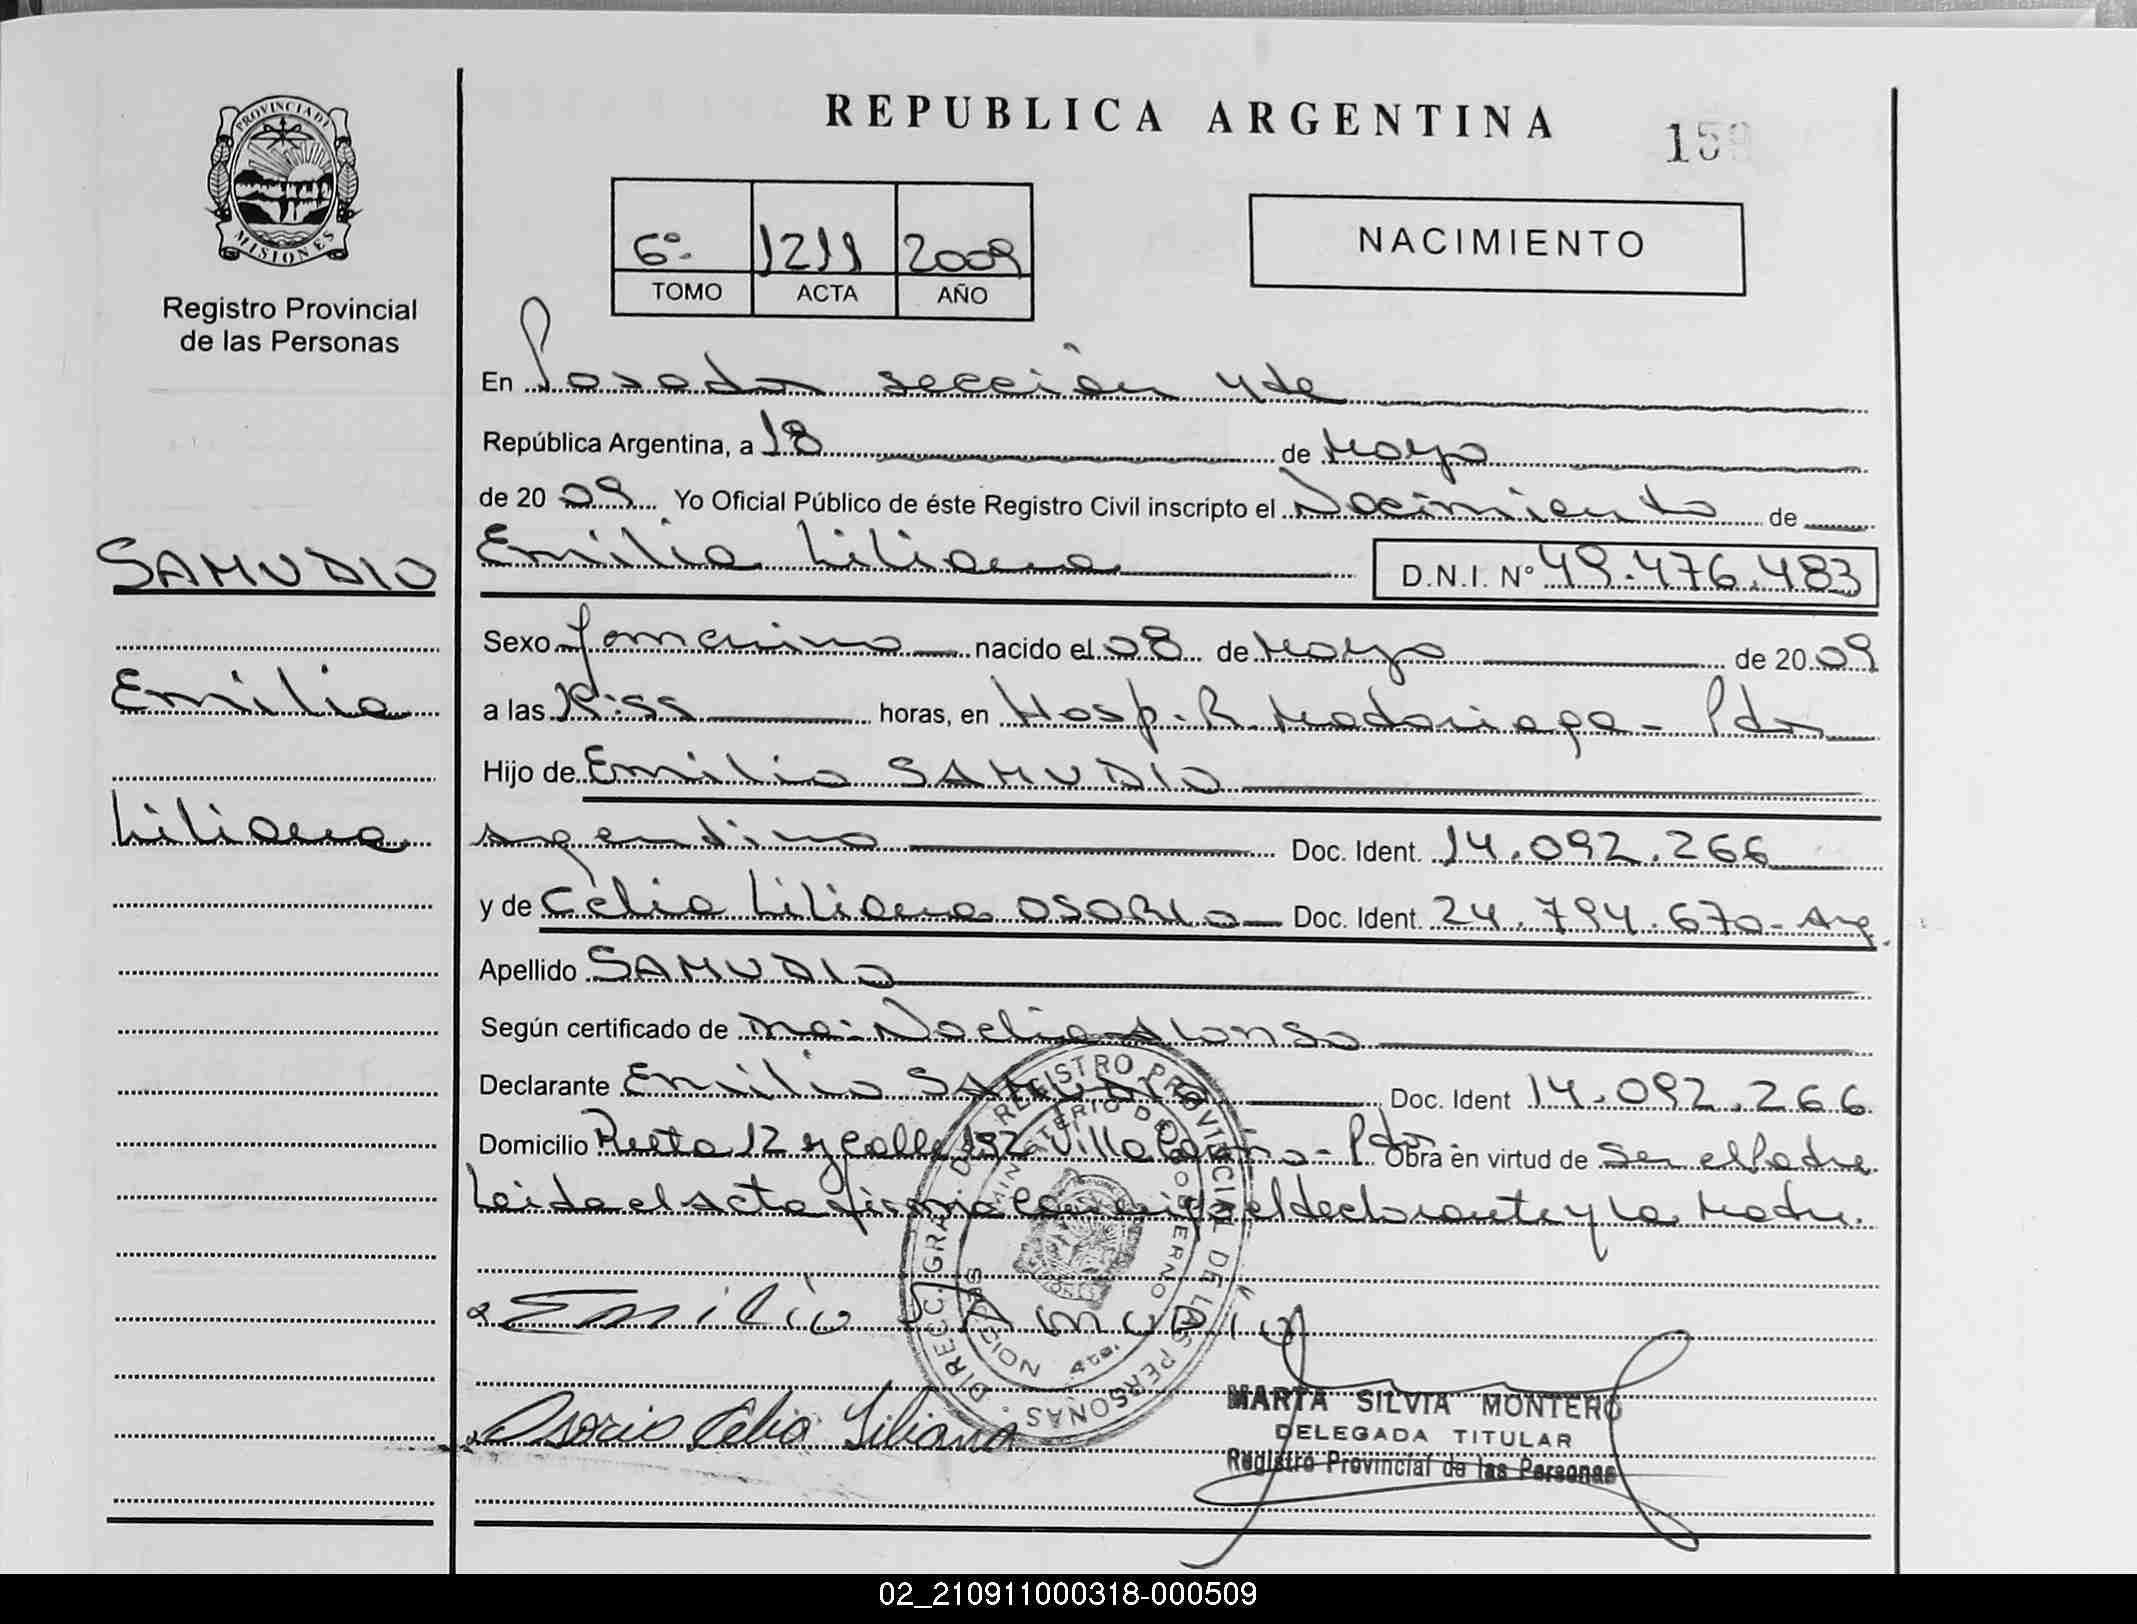 REPUBLICA ARGENTINA
15
PROVINCIA DE
MISIONES
Registro Provincial
de las Personas
6º 1211 2009
TOMO ACTA AÑO
NACIMIENTO
En Posadas sección 4ta
República Argentina, a 18 de Mayo
de 2009 Yo Oficial Público de éste Registro Civil inscripto el Nacimiento de
SAMUDIO
Emilia Liliana D.N.I. Nº 49.476.483
Sexo femenino nacido el 08 de Mayo de 2009
Emilia
a las horas, en Hosp. R. Madariaga - Pdas
Hijo de Emilio SAMUDIO
Liliana
argentino Doc. Ident. 14.092.266
y de Celia Liliana OSORIO Doc. Ident. 24.794.670 - Arg.
Apellido SAMUDIO
Según certificado de Noelia Alonso
Declarante Emilio SAMUDIO Doc. Ident 14.092.266
Domicilio Ruta 12 y calle 192 Villa - Pdas. Obra en virtud de Ser el Padre
Leida el acta firma conmigo el declarante y la Madre.
DIRECC. GRAL. DEL REGISTRO PROVINCIAL DE LAS PERSONAS
MINISTERIO DE GOBIERNO
MISIONES
4ta.
Emilio SAMUDIO
Osorio Celia Liliana
MARTA SILVIA MONTERO
DELEGADA TITULAR
Registro Provincial de las Personas
02_210911000318-000509